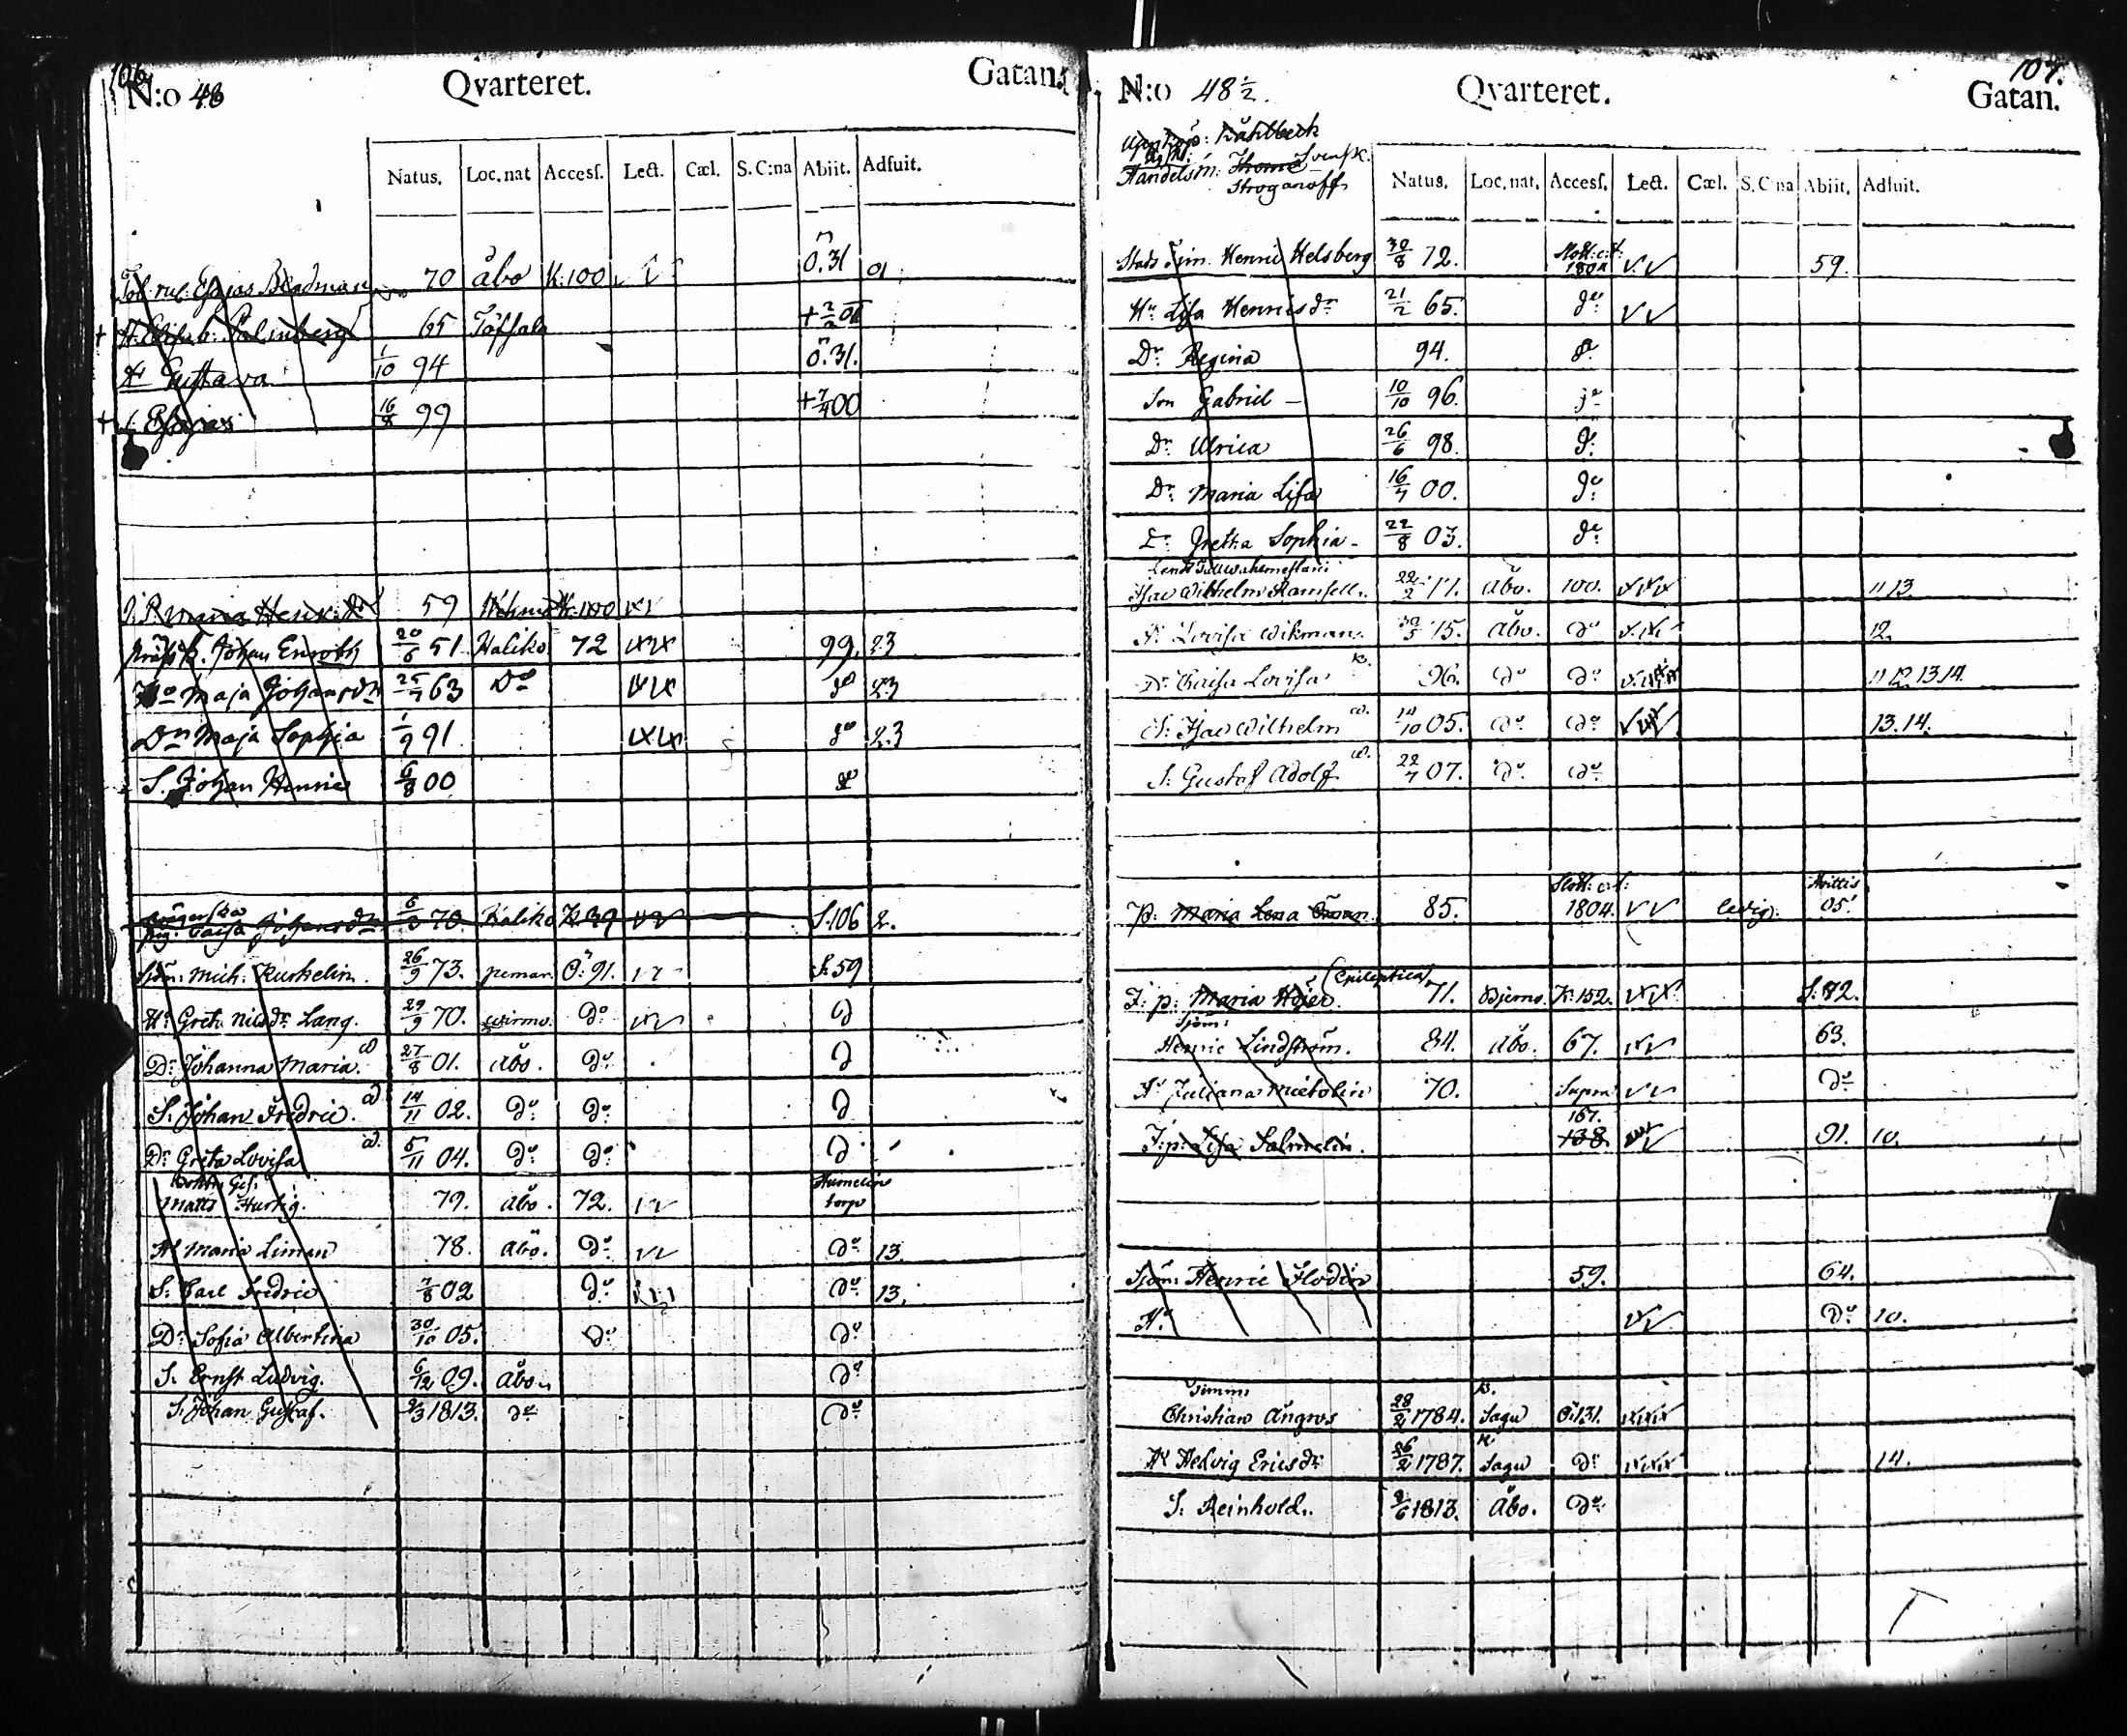 106.
N:o 48 Qvarteret. Gatan.
Natus. Loc. nat Accesſ. Lect. Cæl. S. C:na Abiit. Adfuit.
Esaias Bladman 70 Åbo K:100 Ö. 31 01
+ H. Elisab. Palmberg 65 Töfsala + 2/2 01
Dr Gustava 1/10 94 Ö. 31.
+ S. Esaias 16/8 99 + 7/4 00
Maria Henr: Dr 59 K:100
Johan Enroth 20/6 51 Haliko 72 99. 23
H:o Maja Johansdr 25/7 63 Do do 23
Dr Maja Sophia 1/9 91 do 23
S. Johan Henric 6/8 00 do
pig. Caisa Johansdr 6/3 70 Haliko K 39 S.106 2.
Sjöm: Mich: Kuskelin. 26/9 73. pemar. Ö: 91. S. 59
H: Greta Nilsdr Lang. 29/9 70. wirmo. Do d
Dr: Johanna Maria. 27/8 01. Åbo. Do d
S: Johan Fredric. 14/11 02. Do Do d
Dr: Greta Lovisa 5/11 04. Do Do d
Matts Hurtig. 79. Åbo. 72. torp
H: Maria Liman 78. Åbo. Do Do 13.
S: Carl Fredric 7/8 02 Do Do 13.
Dr: Sofia Albertina 30/10 05. Do Do
S. Ernst Ludvig. 6/12 09. Åbo. Do
S. Johan Gustaf. 1813. Do Do
107.
N:o 48 1/2. Qvarteret. Gatan.
Handelsm: Thomé Svensk.
Stroganoff
Natus. Loc. nat. Accesſ. Lect. Cæl. S. C:na Abiit. Adfuit.
Stads Tim. Henric Helsberg 30/8 72. 59.
Hu Lisa Henrisdr 21/2 65. do
Dr Regina 94. do
Son Gabriel 10/10 96. do
Dr: Ulrica 26/6 98. do
Dr: Maria Lisa 16/7 00. do
Dr: Gretha Sophia 22/8 03. do
Isac Wilhelm Ramsell. 22/2 71. Åbo. 100. 11 13
H: Lovisa Wikman. 30/5 75. Åbo. Do 12.
Dr: Caisa Lovisa 96. Do Do 11 12 13 14.
S: Isac Wilhelm 14/10 05. Do Do 13. 14.
S: Gustaf Adolf 22/7 07. Do Do
p: Maria Lena 85. 1804. ledig. 05.
(Epileptica)
I: p: Maria Höjer. 71. Bjerno. K:152. S:82.
Sjöm:
Henric Lindström. 84. Åbo. 67. 63.
H: Juliana 70. Supra Do
167.
I: p: Lisa Salmelin. 138. 91. 10.
Sjöm: Henric Flodin 59. 64.
H:u Do 10.
Timm:
Christian Ångros 28/2 1784. Sagu Ö:131.
H: Hedvig Ericsdr 26/2 1787. Sagu Do 14.
S. Reinhold. 1813. Åbo. Do